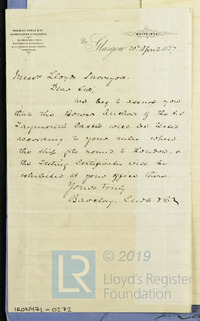 BARCLAY, CURLE & Co
Glasgow, 20th April 1877
Messrs Lloyds Surveyors
Dear Sirs,
We beg to assure you
that the Bower Anchors of the S.S.
Taymouth Castle will be tested
according to your rules when
the ship gets round to London, &
the Testing Certificates will be
exhibited at your office there
Yours truly
Barclay, Curle & Co
© 2019
Lloyd's Register
Foundation
IRON971-0272